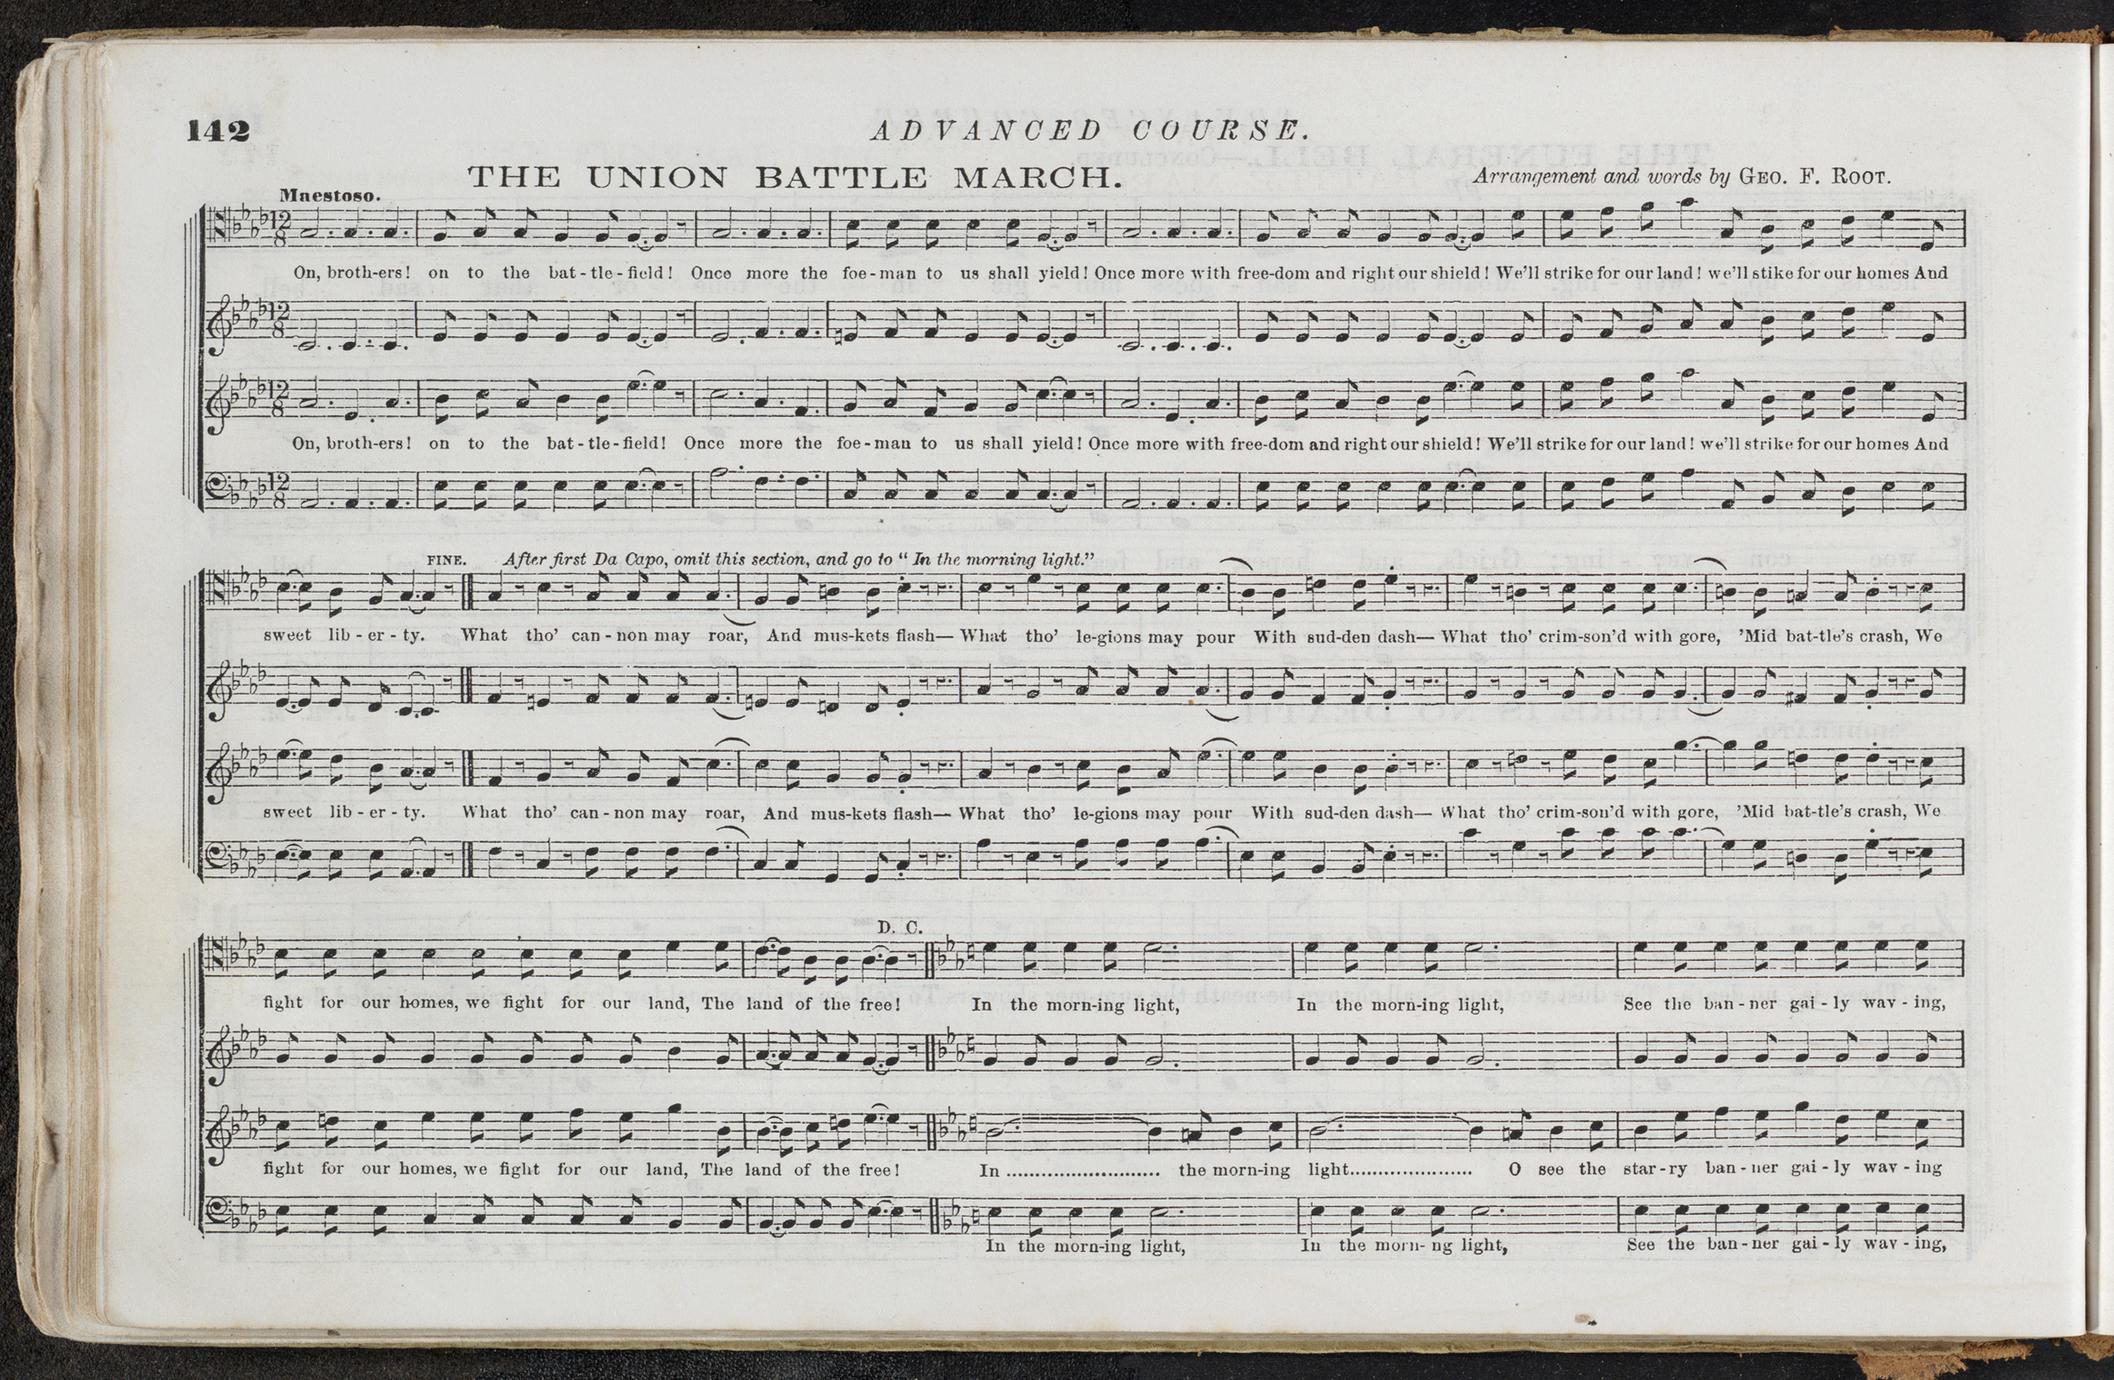 142
ADVANCED COURSE.
THE UNION BATTLE MARCH.
Arrangement and words by GEO. F. ROOT.
Maestoso.
12 8
On, broth-ers! on to the bat-tle-field! Once more the foe-man to us shall yield! Once more with free-dom and right our shield! We'll strike for our land! we'll stike for our homes And
12 8
12 8
On, broth-ers! on to the bat-tle-field! Once more the foe-man to us shall yield! Once more with free-dom and right our shield! We'll strike for our land! we'll strike for our homes And
12 8
FINE. After first Da Capo, omit this section, and go to "In the morning light."
sweet lib-er-ty. What tho' can-non may roar, And mus-kets flash— What tho' le-gions may pour With sud-den dash— What tho' crim-son'd with gore, 'Mid bat-tle's crash, We
sweet lib-er-ty. What tho' can-non may roar, And mus-kets flash— What tho' le-gions may pour With sud-den dash— What tho' crim-son'd with gore, 'Mid bat-tle's crash, We
D. C.
fight for our homes, we fight for our land, The land of the free! In the morn-ing light, In the morn-ing light, See the ban-ner gai-ly wav-ing,
fight for our homes, we fight for our land, The land of the free! In .......................... the morn-ing light..................... O see the star-ry ban-ner gai-ly wav-ing
In the morn-ing light, In the morn- ng light, See the ban-ner gai-ly wav-ing,